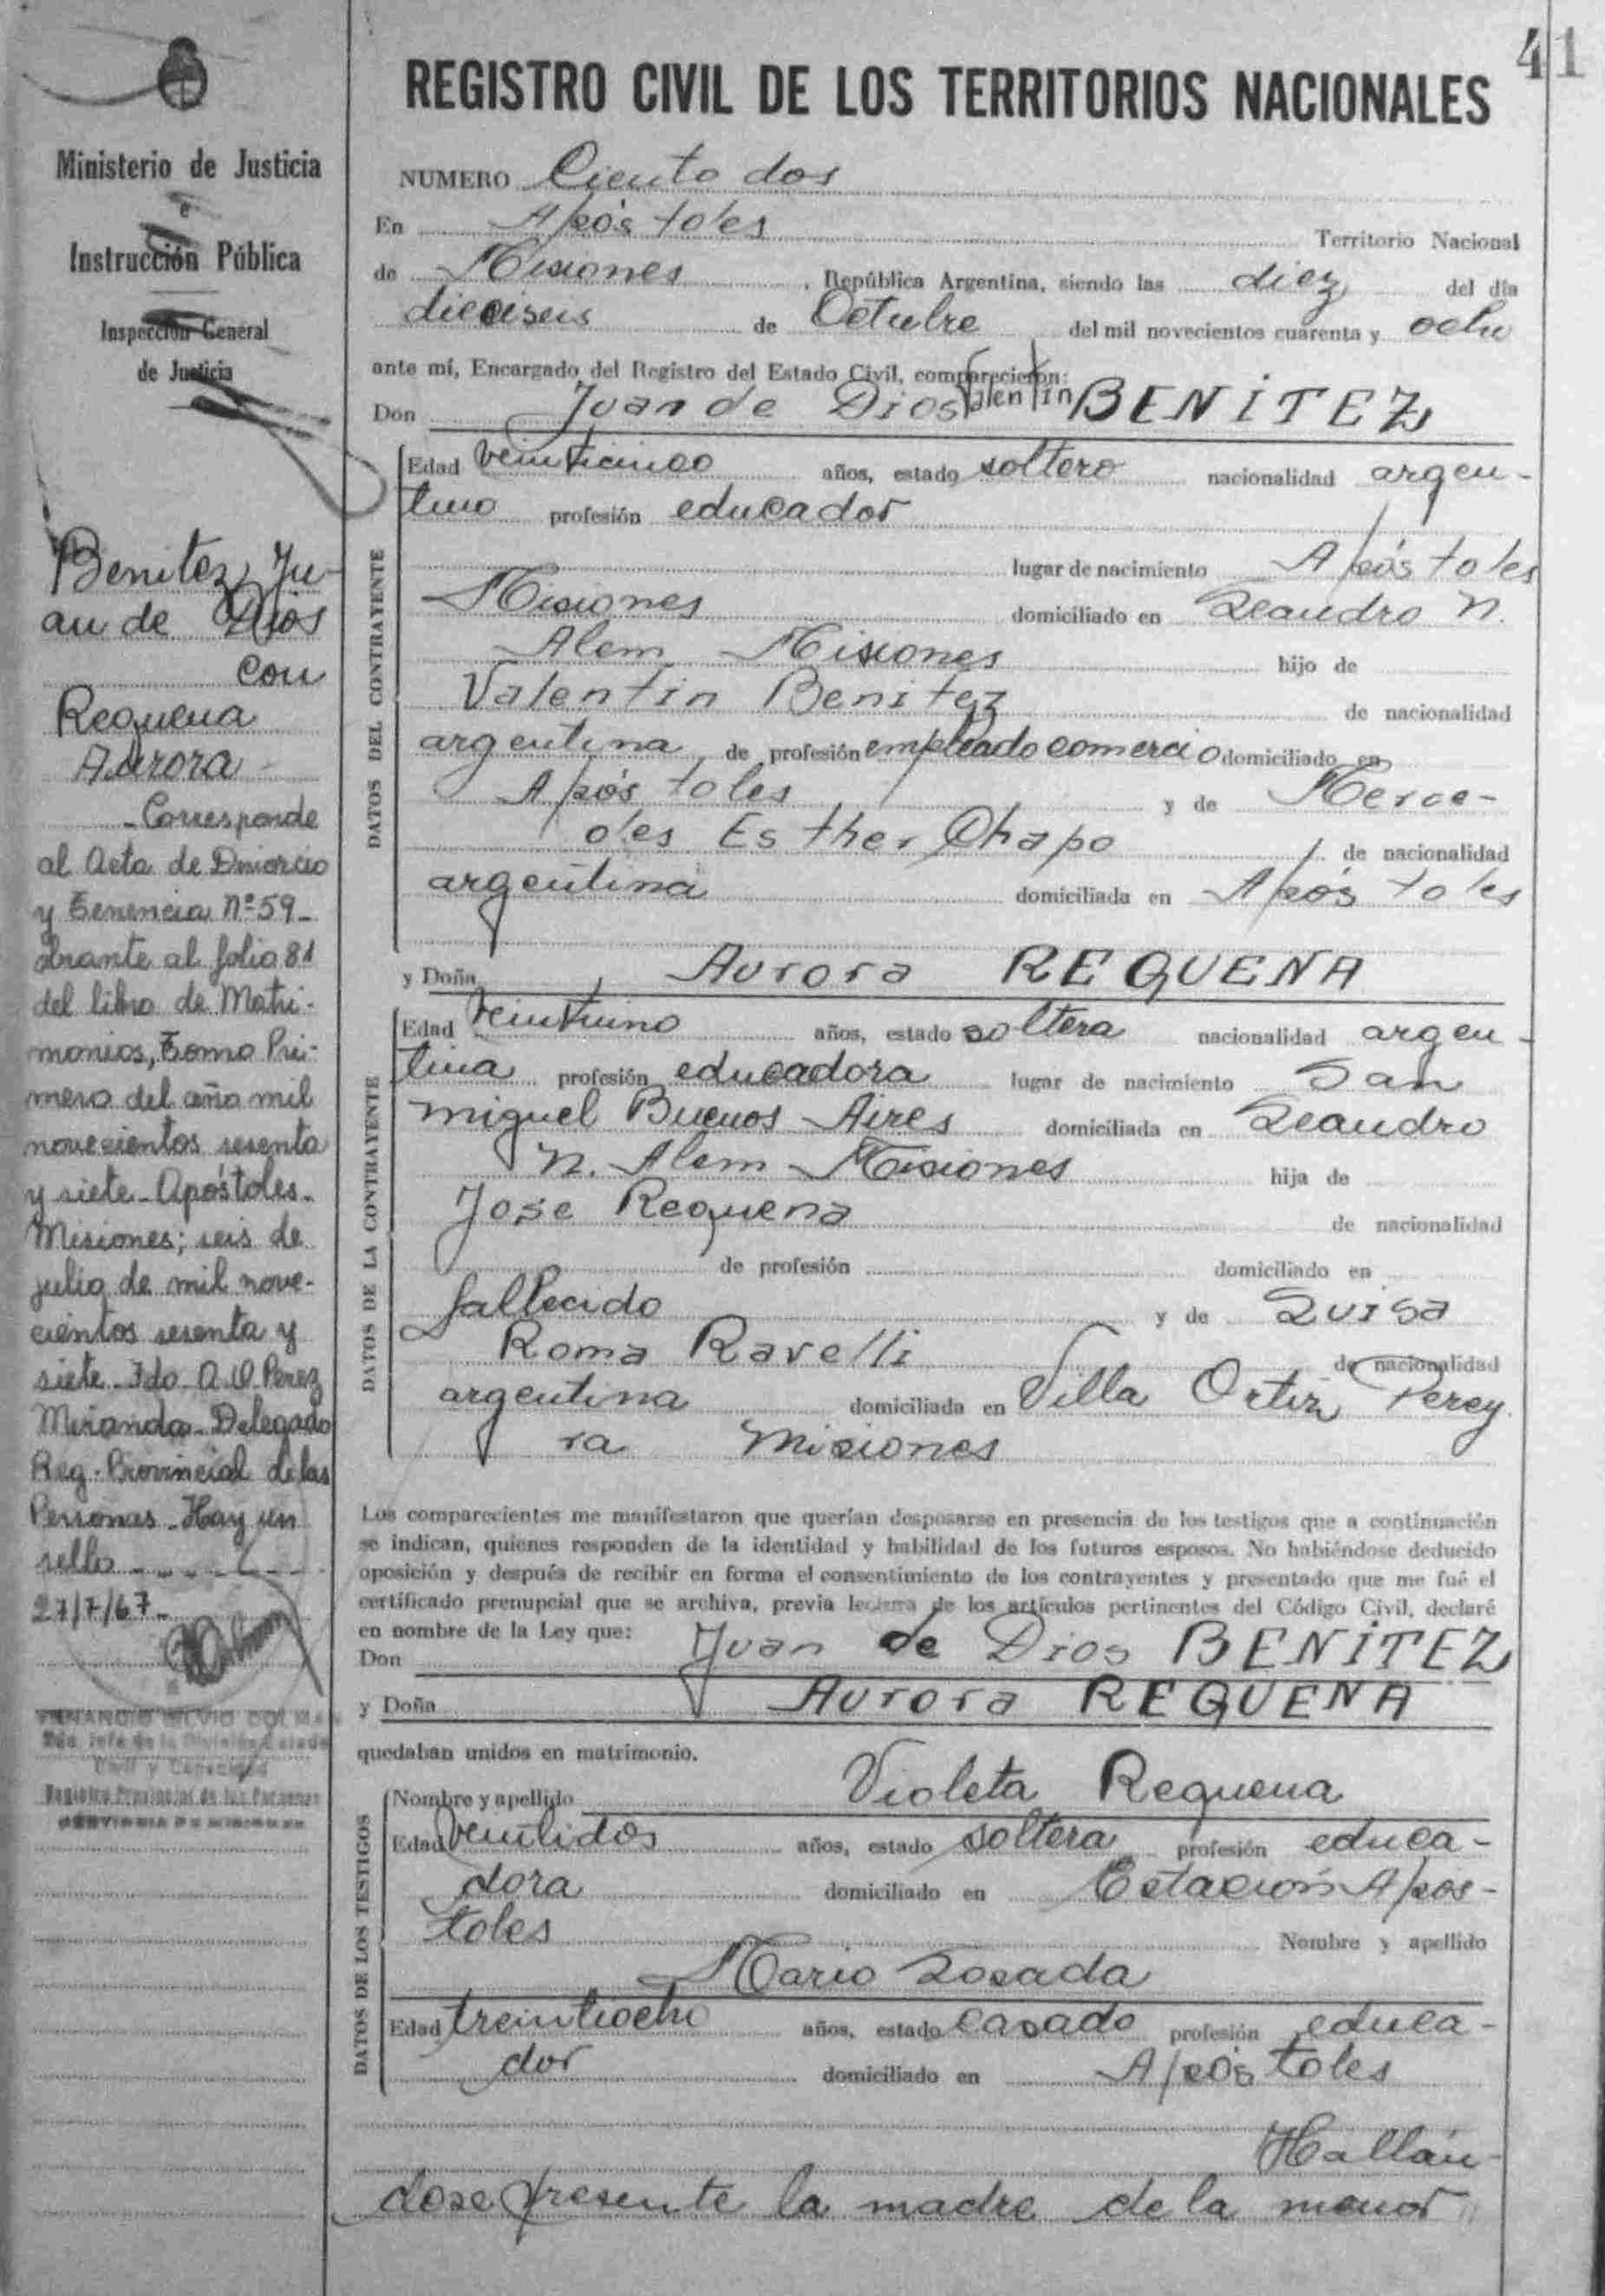 41
REGISTRO CIVIL DE LOS TERRITORIOS NACIONALES
Ministerio de Justicia
e
Instrucción Pública
Inspección General
de Justicia
Benitez, Ju-
an de Dios
con
Requena
Aurora -
- Corresponde
al Acta de Divorcio
y Tenencia Nº 59-
obrante al folio 81
del libro de Matri-
monios, Tomo Pri-
mero del año mil
novecientos sesenta
y siete - Apóstoles.
Misiones; seis de
julio de mil nove-
cientos sesenta y
siete - Fdo A. O. Perez
Miranda - Delegado
Reg. Provincial de las
Personas - Hay un
sello
27/7/67-
Civil y Capacidad
Registro Provincial de las Personas
NUMERO Ciento dos
En Apóstoles Territorio Nacional
de Misiones, República Argentina, siendo las diez del día
dieciseis de Octubre del mil novecientos cuarenta y ocho
ante mí, Encargado del Registro del Estado Civil, comparecieron:
Don Juan de Dios Valentin BENITEZ
DATOS DEL CONTRAYENTE
Edad veinticinco años, estado soltero nacionalidad argen-
tino profesión educador
lugar de nacimiento Apóstoles
Misiones domiciliado en Leandro N.
Alem Misiones hijo de
Valentin Benitez de nacionalidad
argentina de profesión empleado comercio domiciliado en
Apóstoles y de Merce-
des Esther Chapo de nacionalidad
argentina domiciliada en Apóstoles
y Doña Aurora REQUENA
DATOS DE LA CONTRAYENTE
Edad veintiuno años, estado soltera nacionalidad argen-
tina profesión educadora lugar de nacimiento San
Miguel Buenos Aires domiciliada en Leandro
N. Alem Misiones hija de
Jose Requena de nacionalidad
de profesión domiciliado en
fallecido y de Luisa
Roma Ravelli de nacionalidad
argentina domiciliada en Villa Ortiz Perey
ra Misiones
Los comparecientes me manifestaron que querían desposarse en presencia de los testigos que a continuación
se indican, quienes responden de la identidad y habilidad de los futuros esposos. No habiéndose deducido
oposición y después de recibir en forma el consentimiento de los contrayentes y presentado que me fué el
certificado prenupcial que se archiva, previa lectura de los artículos pertinentes del Código Civil, declaré
en nombre de la Ley que:
Don Juan de Dios BENITEZ
y Doña Aurora REQUENA
quedaban unidos en matrimonio.
DATOS DE LOS TESTIGOS
Nombre y apellido Violeta Requena
Edad veintidos años, estado soltera profesión educa-
dora domiciliado en Estación Apos-
toles Nombre y apellido
Mario Losada
Edad treintiocho años, estado casado profesión educa-
dor domiciliado en Apóstoles
Hallán-
dose presente la madre de la menor